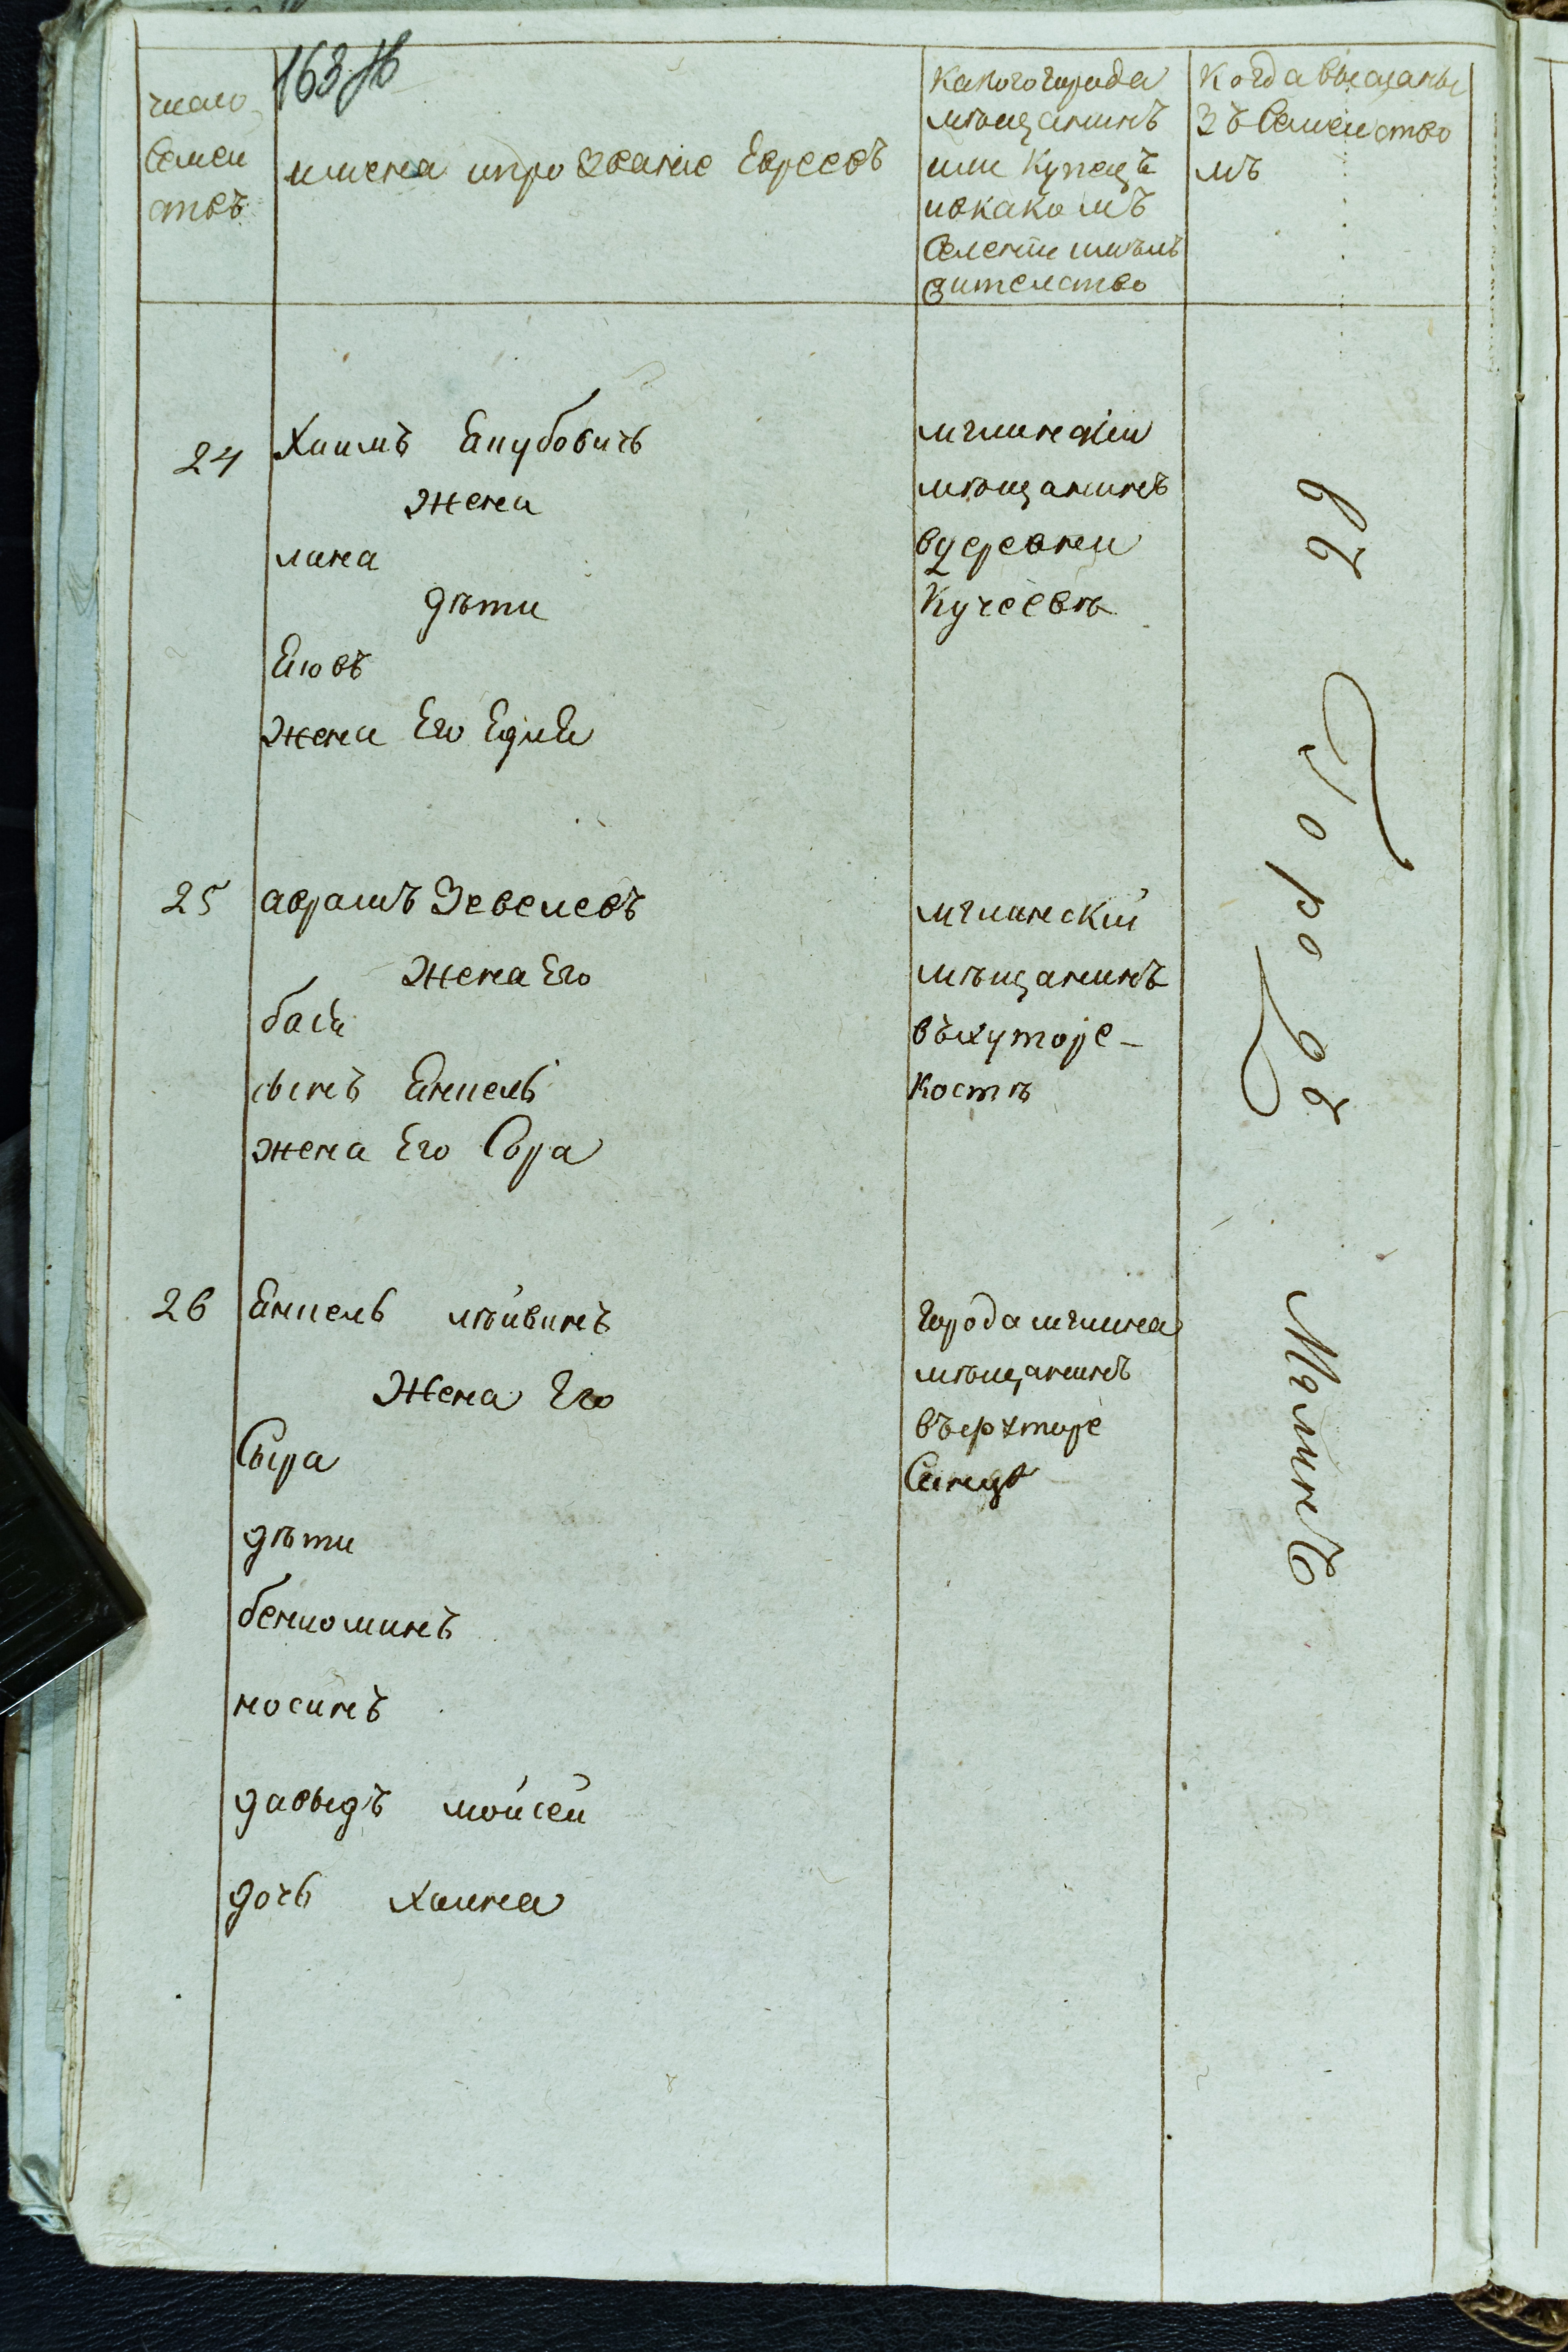 163 об
число
Семеи
ствъ
имена ипрозвание Евреевъ
Какого города
мѣщанинъ
или Купецъ
ивкакомъ
Селении имѣлъ
жителство
Когда высланы
зъ Семеиство
мъ
24
Хаимъ Екубовичъ
жена
лина
дѣти
Еювъ
жена Его Едля
мглинскіи
мѣщанинъ
вдеревни
Кучеевѣ
25
аврамъ Зевелевъ
жена Его
бася
сынъ Енкель
жена Его Сора
мглинскій
мѣщанинъ
въхуторе
Костѣ
26
Енкель лѣйвинъ
Жена Его
Сыра
дѣти
бениоминъ
носинъ
давыдъ мойсей
дочь хаина
города мглина
мѣщанинъ
въхуторе
въ
Городъ
Мглинъ